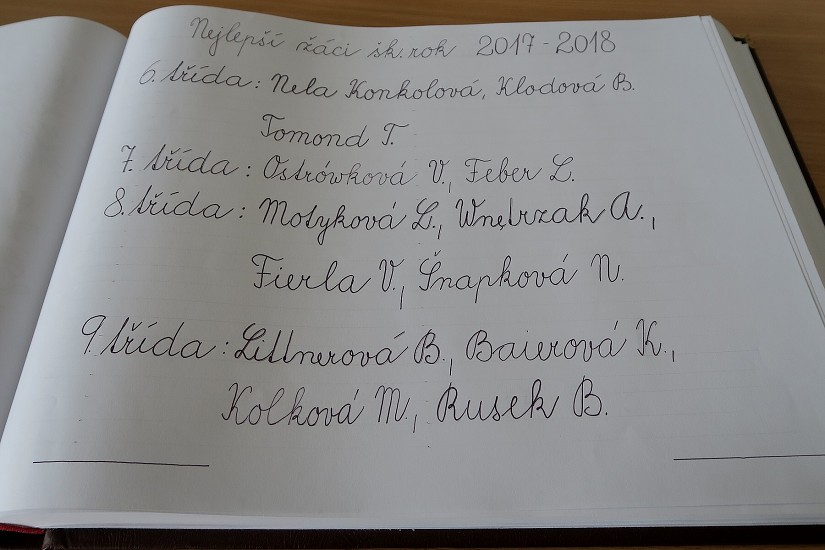 Nejlepší žáci šk. rok 2017-2018
6. třída: Nela Konkolová, Klodová B.
Tomond T.
7. třída: Ostrówková V., Feber L.
8. třída: Motyková L., Wnętrzak A.,
Fierla V., Šnapková N.
9. třída: Littnerová B., Baierová K.,
Kolková M., Rusek B.